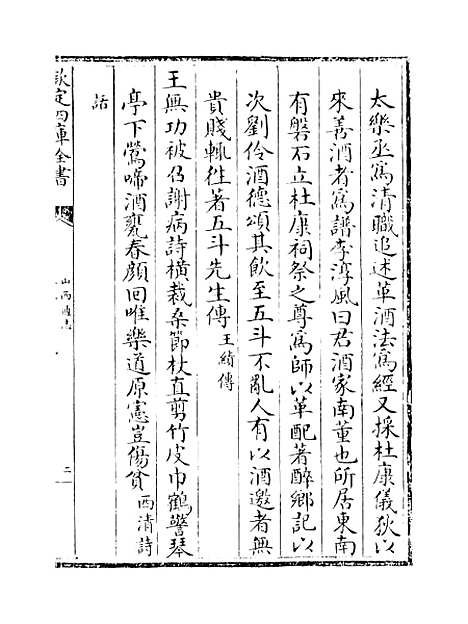 太樂丞爲清職追述革酒法爲經又採杜康儀狄以
來善酒者爲譜李淳風曰君酒家南董也所居東南
有磐石立杜康祠祭之尊爲師以革配著醉鄉記以
次劉伶酒德頌其飲至五斗不亂人有以酒邀者無
貴賤輒往著五斗先生傳王績傳
王無功被召謝病詩横裁桑節杖直剪竹皮巾鶴警琴
亭下鶯啼酒甕春顔回唯樂道原憲豈傷貧西清詩
話
欽定四庫全書
山西通志
二